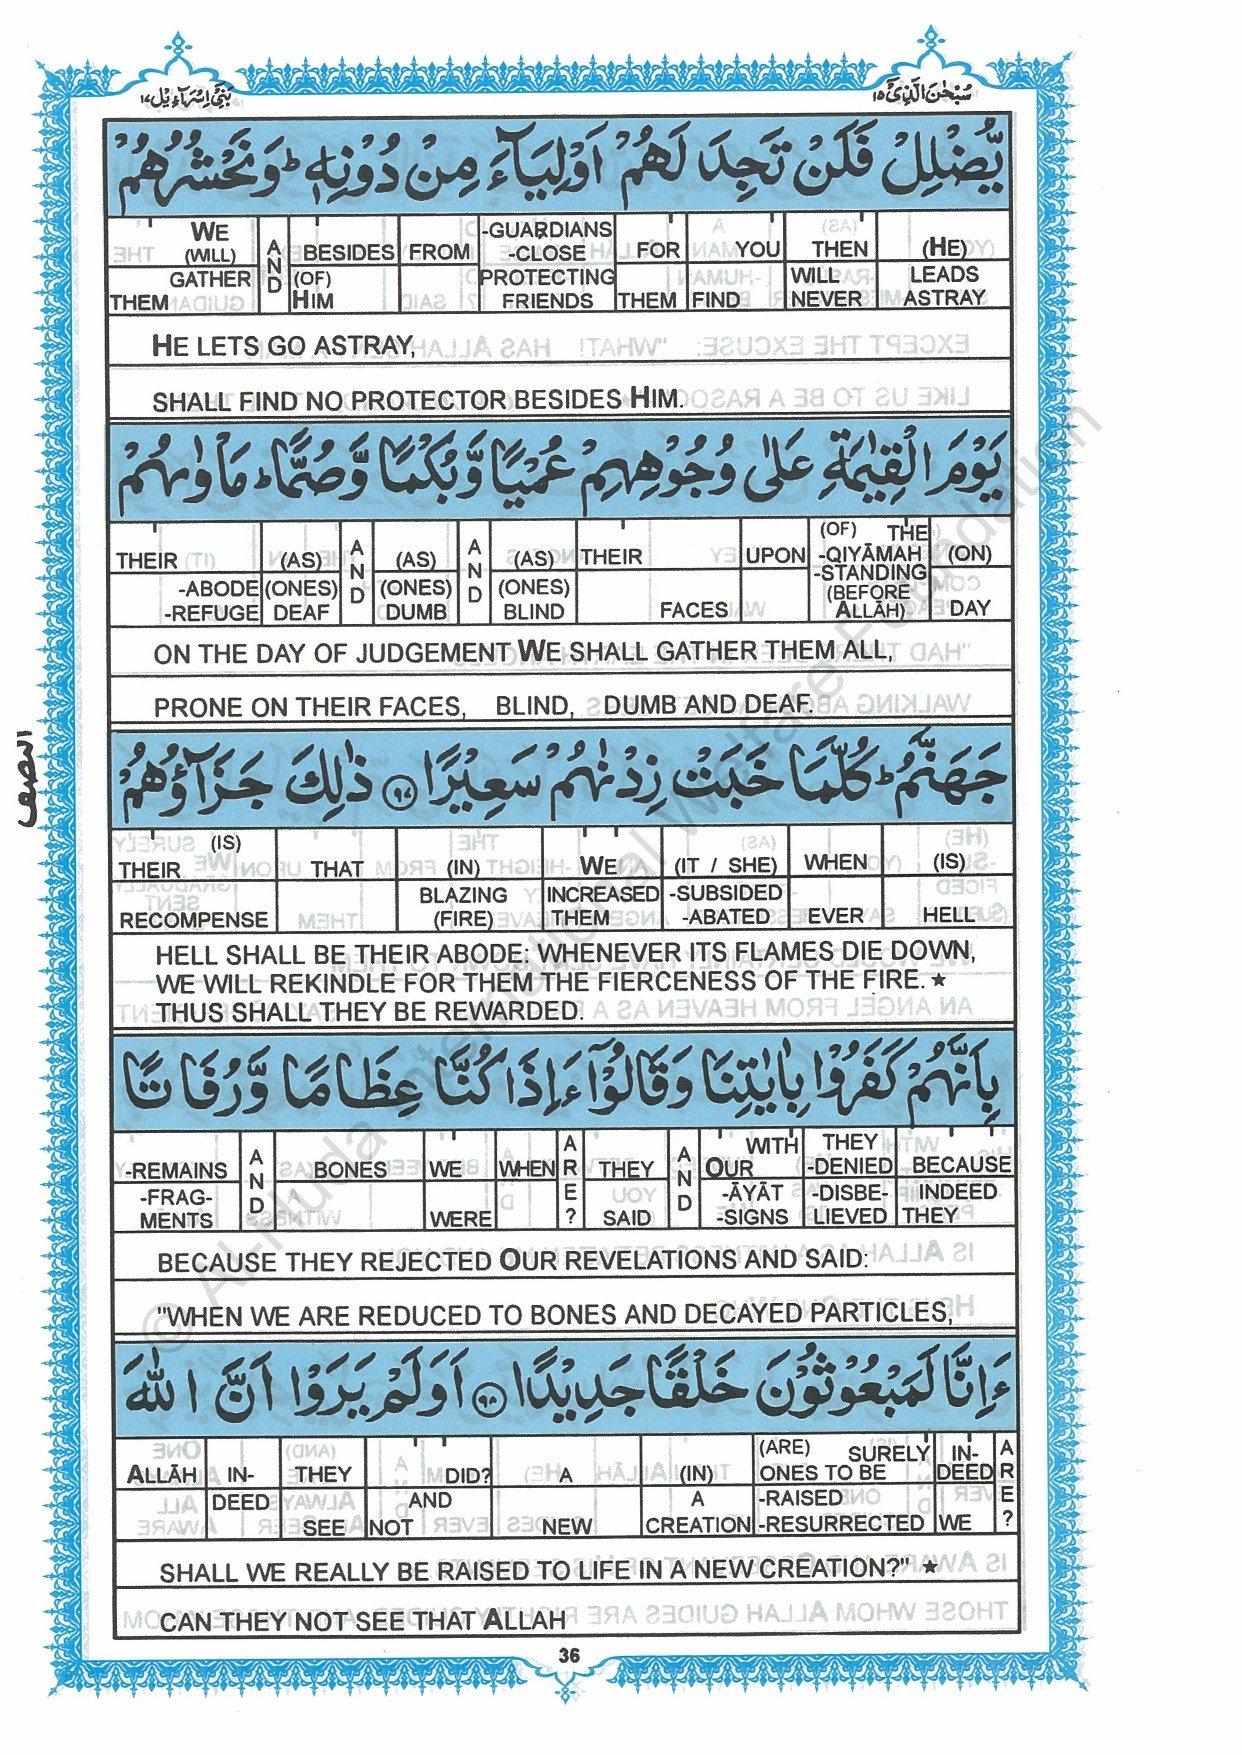 بَنِىٓ اِسْرَآءِيْل ١٧
سُبْحٰنَ الَّذِىْٓ ١٥
يُّضْلِلْ فَلَنْ تَجِدَ لَهُمْ اَوْلِيَآءَ مِنْ دُوْنِهٖ ؕ وَنَحْشُرُهُمْ
WE (WILL) GATHER THEM | AND | BESIDES (OF) HIM | FROM | -GUARDIANS -CLOSE PROTECTING FRIENDS | FOR THEM | YOU FIND | THEN WILL NEVER | (HE) LEADS ASTRAY
HE LETS GO ASTRAY,
SHALL FIND NO PROTECTOR BESIDES HIM.
يَوْمَ الْقِيٰمَةِ عَلٰى وُجُوْهِهِمْ عُمْيًا وَّبُكْمًا وَّصُمًّا ؕ مَاْوٰىهُمْ
THEIR -ABODE -REFUGE | (AS) (ONES) DEAF | AND | (AS) (ONES) DUMB | AND | (AS) (ONES) BLIND | THEIR FACES | UPON | (OF) THE -QIYĀMAH -STANDING (BEFORE ALLĀH) | (ON) DAY
ON THE DAY OF JUDGEMENT WE SHALL GATHER THEM ALL,
PRONE ON THEIR FACES, BLIND, DUMB AND DEAF.
النصف
جَهَنَّمُ ؕ كُلَّمَا خَبَتْ زِدْنٰهُمْ سَعِيْرًا ۝٩٧ ذٰلِكَ جَزَآؤُهُمْ
THEIR (IS) RECOMPENSE | THAT | (IN) BLAZING (FIRE) | WE INCREASED THEM | (IT / SHE) -SUBSIDED -ABATED | WHEN EVER | (IS) HELL
HELL SHALL BE THEIR ABODE: WHENEVER ITS FLAMES DIE DOWN,
WE WILL REKINDLE FOR THEM THE FIERCENESS OF THE FIRE. ★
THUS SHALL THEY BE REWARDED.
بِاَنَّهُمْ كَفَرُوْا بِاٰيٰتِنَا وَقَالُوْٓا ءَاِذَا كُنَّا عِظَامًا وَّرُفَاتًا
-REMAINS -FRAG-MENTS | AND | BONES | WE WERE | WHEN | ARE? | THEY SAID | AND | WITH OUR -ĀYĀT -SIGNS | THEY -DENIED -DISBE-LIEVED | BECAUSE INDEED THEY
BECAUSE THEY REJECTED OUR REVELATIONS AND SAID:
"WHEN WE ARE REDUCED TO BONES AND DECAYED PARTICLES,
ءَاِنَّا لَمَبْعُوْثُوْنَ خَلْقًا جَدِيْدًا ۝٩٨ اَوَلَمْ يَرَوْا اَنَّ اللّٰهَ
ALLĀH | IN-DEED | THEY SEE | DID? AND NOT | A NEW | (IN) A CREATION | (ARE) SURELY ONES TO BE -RAISED -RESURRECTED | IN-DEED WE | ARE?
SHALL WE REALLY BE RAISED TO LIFE IN A NEW CREATION?" ★
CAN THEY NOT SEE THAT ALLAH
36
© Al-Huda International Welfare Foundation